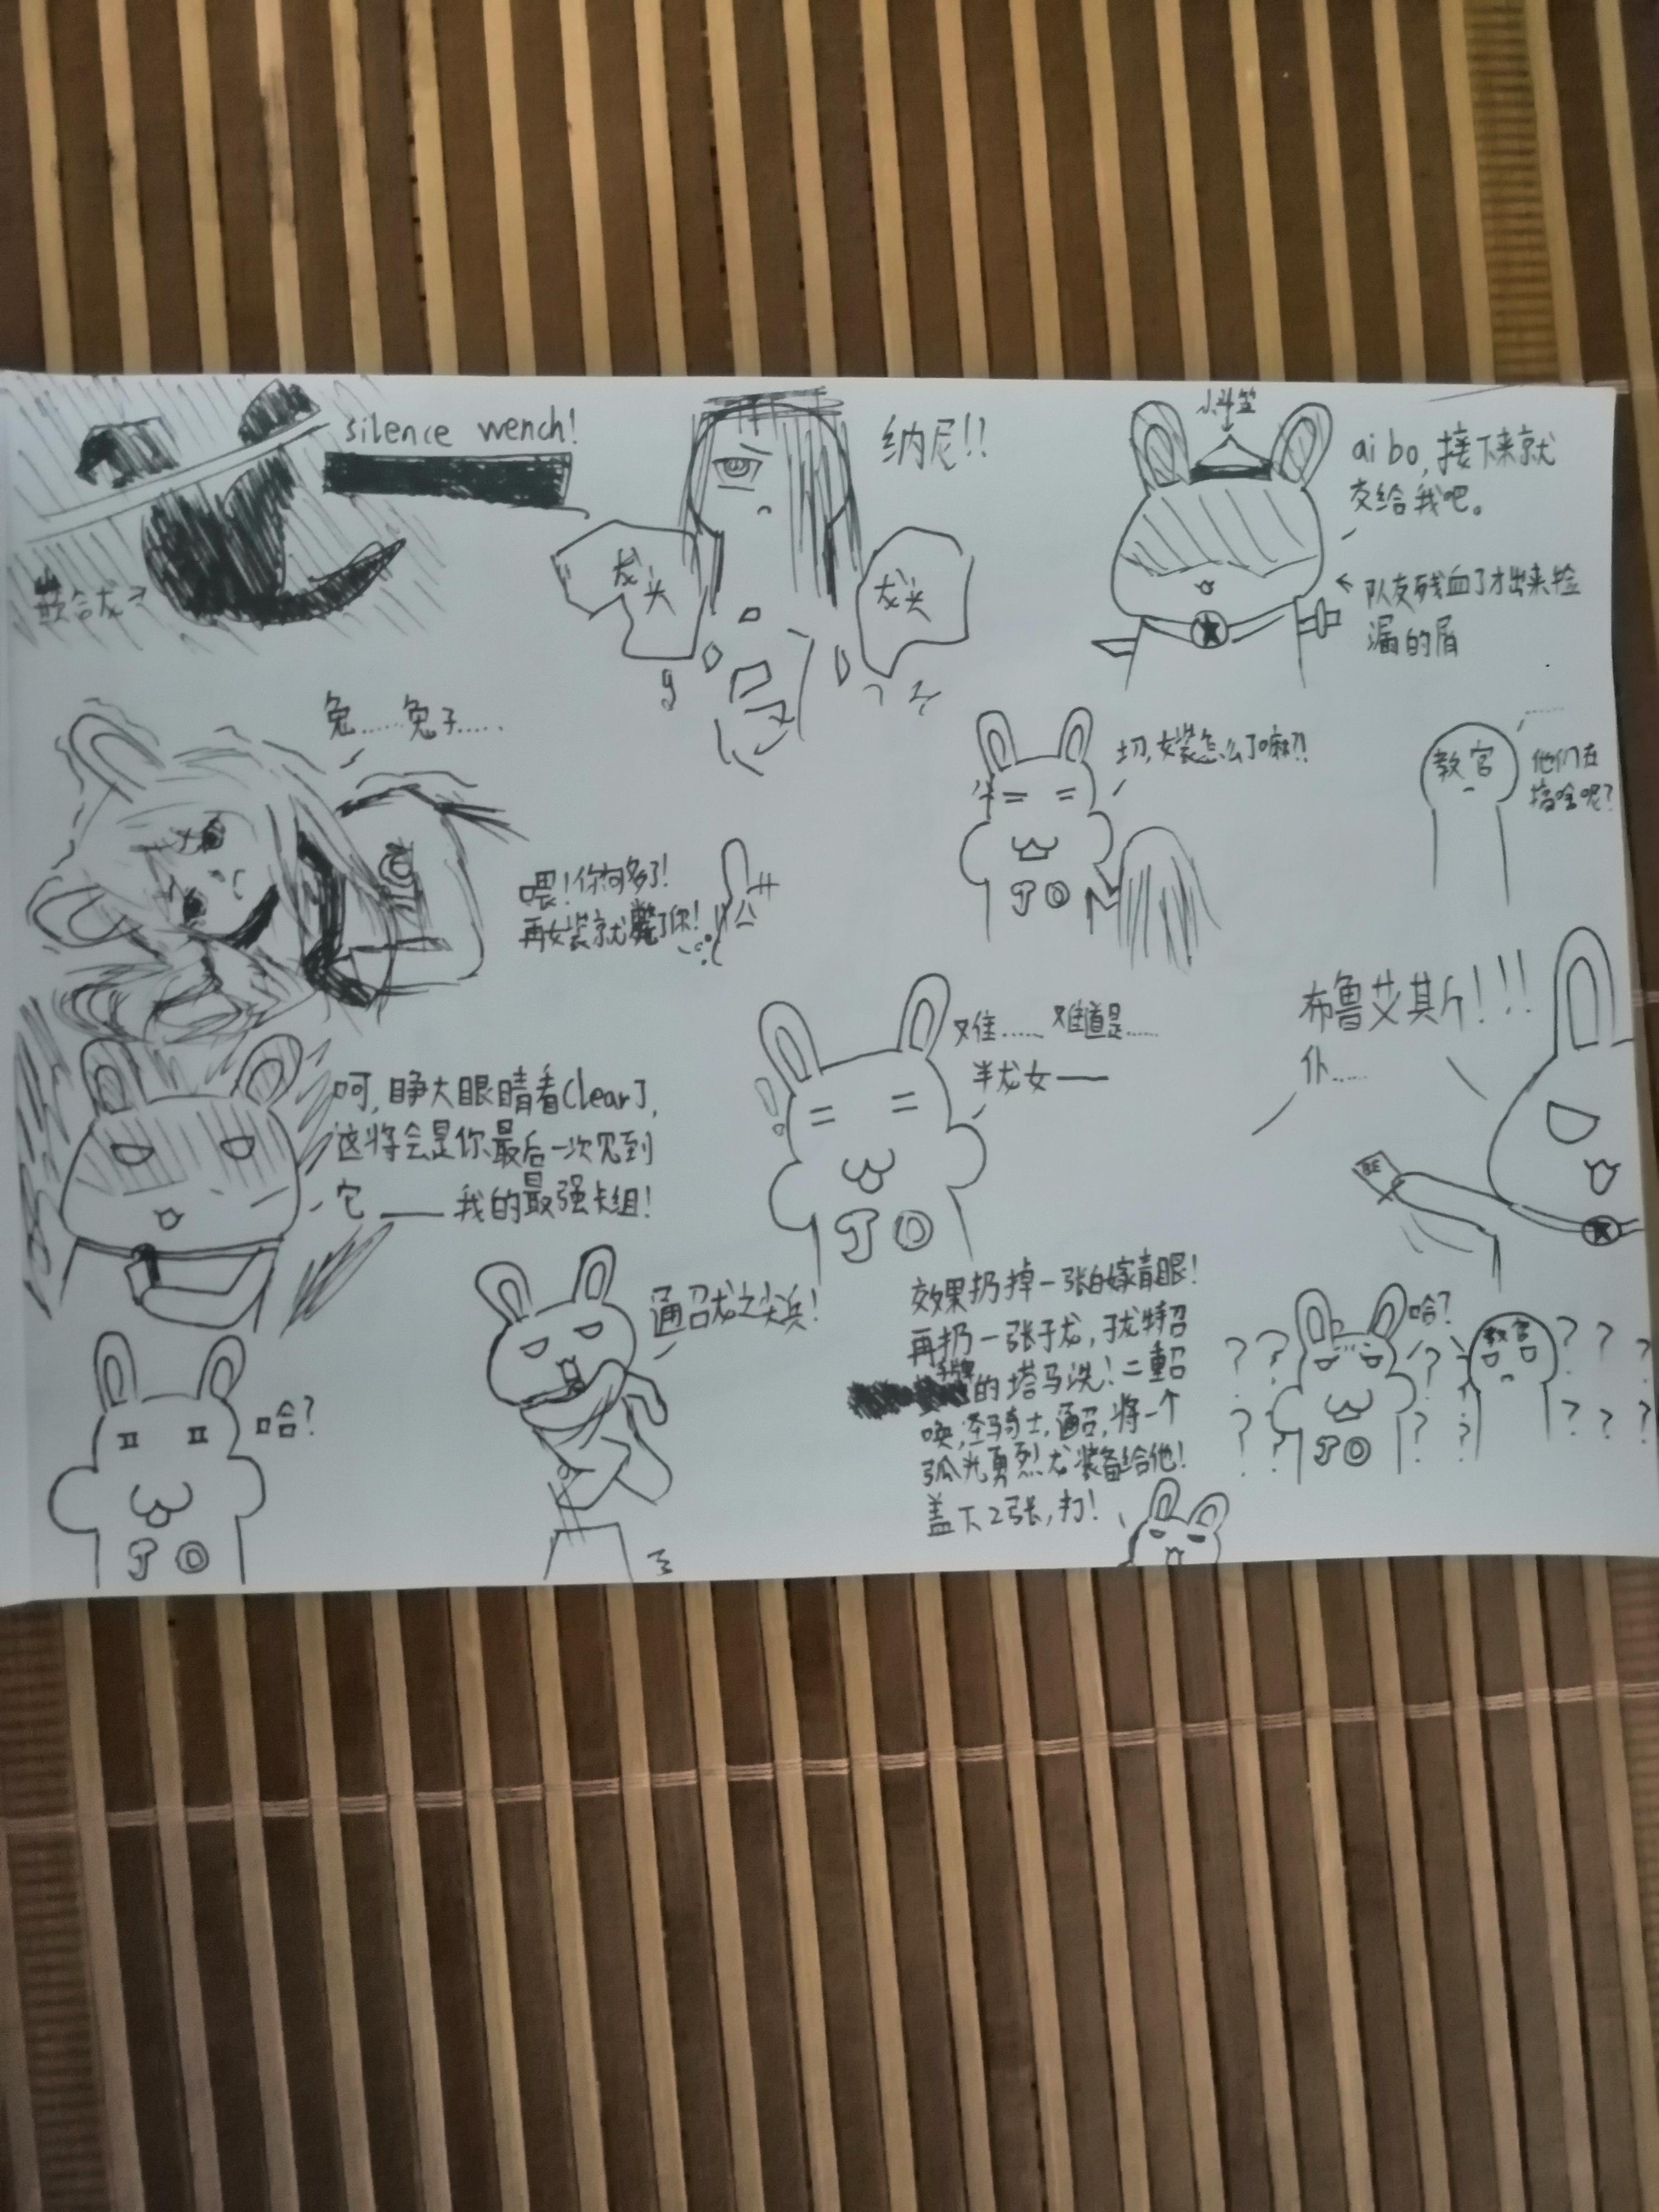 silence wench!
纳尼!!
小斗笠
ai bo, 接下来就
交给我吧。
龙头
龙头
合龙
队友残血了才出来捡
漏的屑
兔……兔子……
切,女装怎么了嘛?!
教官
……
他们在
搞啥呢?
喂!你够了!
再女装就毙了你!
难……难道是……
半龙女——
布鲁艾其斤!!!
仆……
呵,睁大眼睛看Clear了,
这将会是你最后一次见到
它——我的最强卡组!
JO
JO
哈?
JO
通召龙之尖兵!
效果扔掉一张白嫁青眼!
再扔一张于龙,于龙特招
手牌的塔马洗!二重召
唤,圣骑士,通召,将一个
弧光勇烈龙装备给他!
盖下2张,打!
哈?
教官
JO